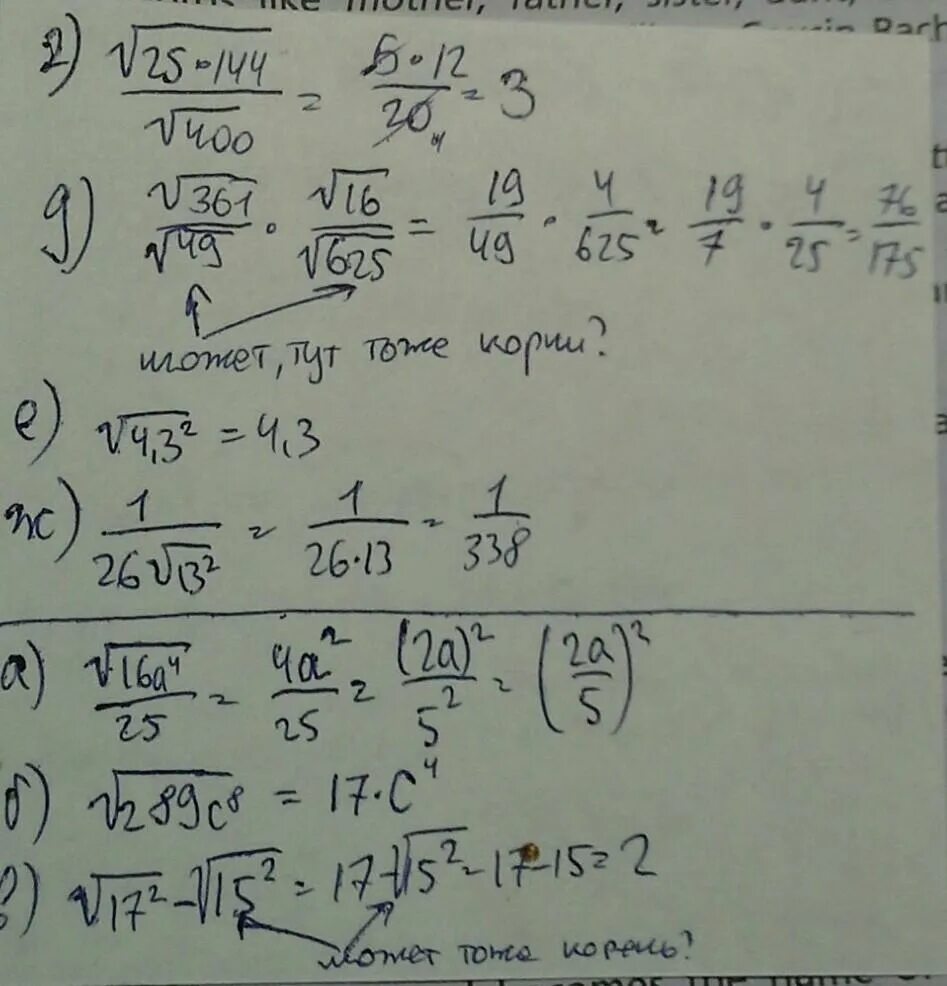 like mother, father, sister,
г) √(25·144)/√400 = 5·12/20 = 3
д) √361/√49 · √16/√625 = 19/49 · 4/625 = 19/7 · 4/25 = 76/175
может, тут тоже корни?
е) √4,3² = 4,3
ж) 1/(26√13²) = 1/(26·13) = 1/338
а) √(16a⁴)/25 = 4a²/25 = (2a)²/5² = (2a/5)²
б) √(289c⁸) = 17·c⁴
в) √17² - √15² = 17 - √15² = 17 - 15 = 2
может тоже корень?